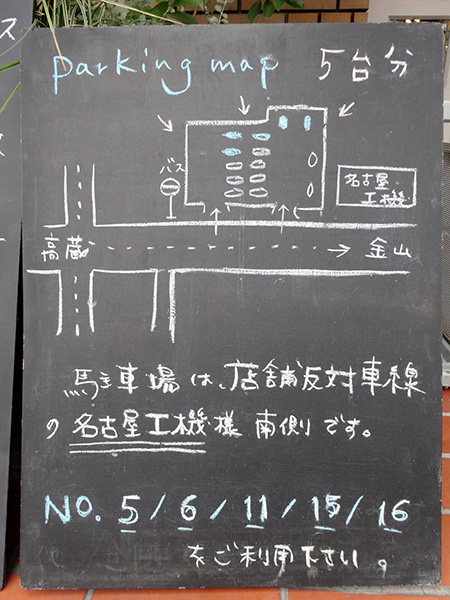 parking map 5台分
バス
名古屋
工機
高蔵
金山
駐車場は、店舗反対車線
の名古屋工機様 南側です。
NO. 5 / 6 / 11 / 15 / 16
をご利用下さい。